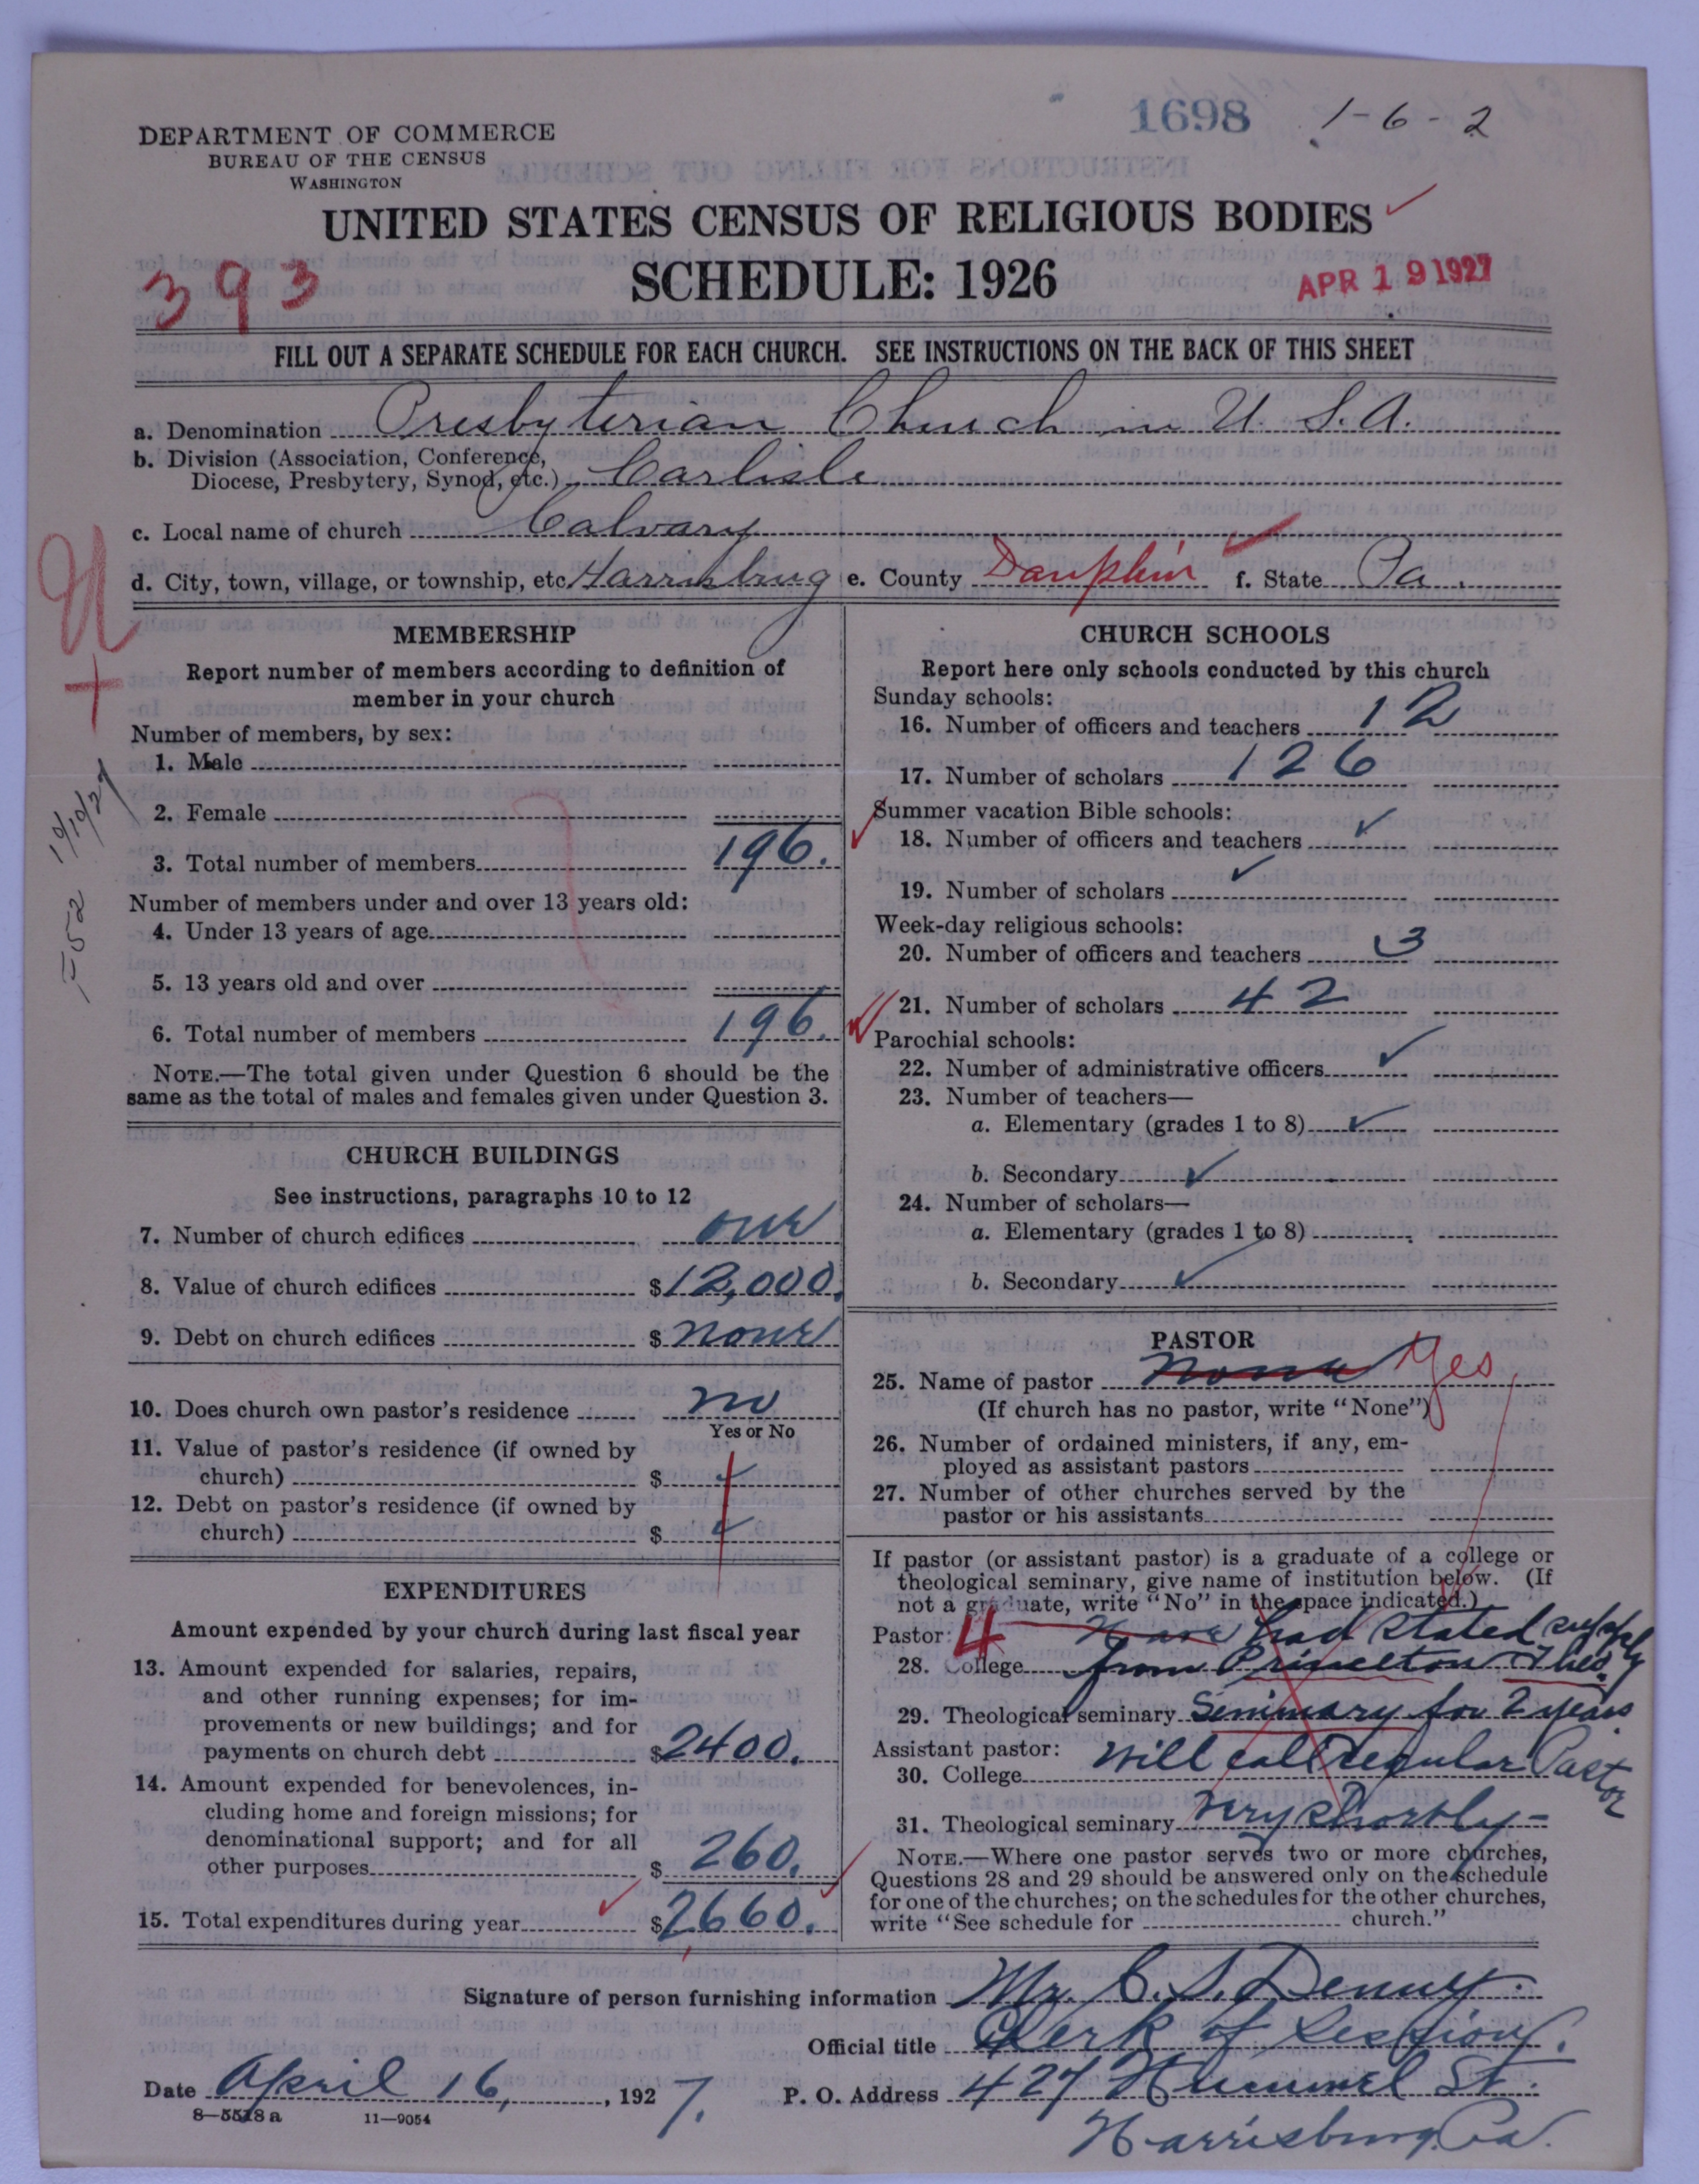 1698 1-6-2
DEPARTMENT OF COMMERCE
BUREAU OF THE CENSUS
WASHINGTON
UNITED STATES CENSUS OF RELIGIOUS BODIES
SCHEDULE: 1926
393
APR 19 1927
FILL OUT A SEPARATE SCHEDULE FOR EACH CHURCH. SEE INSTRUCTIONS ON THE BACK OF THIS SHEET
a. Denomination Presbyterian Church in U.S.A.
b. Division (Association, Conference,
Diocese, Presbytery, Synod, etc.) Carlisle
c. Local name of church Calvary
d. City, town, village, or township, etc. Harrisburg e. County Dauphin f. State Pa.
MEMBERSHIP
Report number of members according to definition of
member in your church
Number of members, by sex:
1. Male
2. Female
3. Total number of members 196.
Number of members under and over 13 years old:
4. Under 13 years of age
5. 13 years old and over
6. Total number of members 196.
NOTE.—The total given under Question 6 should be the
same as the total of males and females given under Question 3.
CHURCH BUILDINGS
See instructions, paragraphs 10 to 12
7. Number of church edifices one
8. Value of church edifices $12,000.
9. Debt on church edifices $ none
10. Does church own pastor's residence no
Yes or No
11. Value of pastor's residence (if owned by
church) $
12. Debt on pastor's residence (if owned by
church) $
EXPENDITURES
Amount expended by your church during last fiscal year
13. Amount expended for salaries, repairs,
and other running expenses; for im-
provements or new buildings; and for
payments on church debt $2400.
14. Amount expended for benevolences, in-
cluding home and foreign missions; for
denominational support; and for all
other purposes $ 260.
15. Total expenditures during year $2660.
CHURCH SCHOOLS
Report here only schools conducted by this church
Sunday schools:
16. Number of officers and teachers 12
17. Number of scholars 126
Summer vacation Bible schools:
18. Number of officers and teachers
19. Number of scholars
Week-day religious schools:
20. Number of officers and teachers 3
21. Number of scholars 42
Parochial schools:
22. Number of administrative officers
23. Number of teachers—
a. Elementary (grades 1 to 8)
b. Secondary
24. Number of scholars—
a. Elementary (grades 1 to 8)
b. Secondary
PASTOR
25. Name of pastor None Yes
(If church has no pastor, write "None")
26. Number of ordained ministers, if any, em-
ployed as assistant pastors
27. Number of other churches served by the
pastor or his assistants
If pastor (or assistant pastor) is a graduate of a college or
theological seminary, give name of institution below. (If
not a graduate, write "No" in the space indicated.)
Pastor: 4 Have had stated supply
28. College from Princeton Theo.
29. Theological seminary Seminary for 2 years
Assistant pastor: will call regular Pastor
30. College
31. Theological seminary very shortly—
NOTE.—Where one pastor serves two or more churches,
Questions 28 and 29 should be answered only on the schedule
for one of the churches; on the schedules for the other churches,
write "See schedule for church."
Signature of person furnishing information Mr. C. S. Denny.
Official title Clerk of Session.
Date April 16, 1927. P. O. Address 427 Hummel St.
Harrisburg, Pa.
8—5518a 11—9054